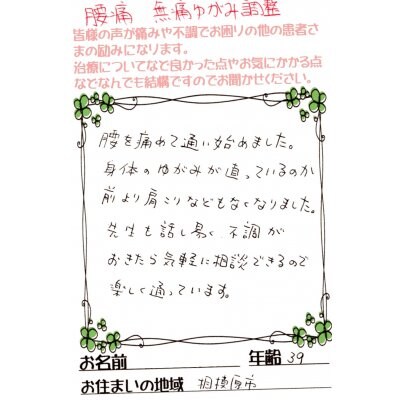 腰痛 無痛ゆがみ調整
皆様の声が痛みや不調でお困りの他の患者さ
まの励みになります。
治療についてなど良かった点やお気にかかる点
などなんでも結構ですのでお聞かせください。
腰を痛めて通い始めました。
身体のゆがみが直っているのか
前より肩こりなどもなくなりました。
先生も話し易く 不調が
おきたら気軽に相談できるので
楽しく通っています。
お名前
年齢 39
お住まいの地域 相模原市